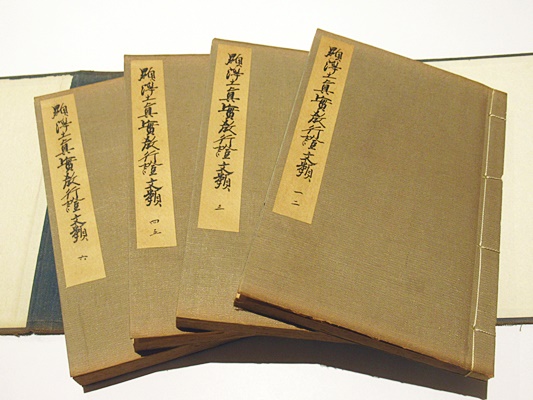 顯淨土真實教行證文類 一二
顯淨土真實教行證文類 上
顯淨土真實教行證文類 四上
顯淨土真實教行證文類 六